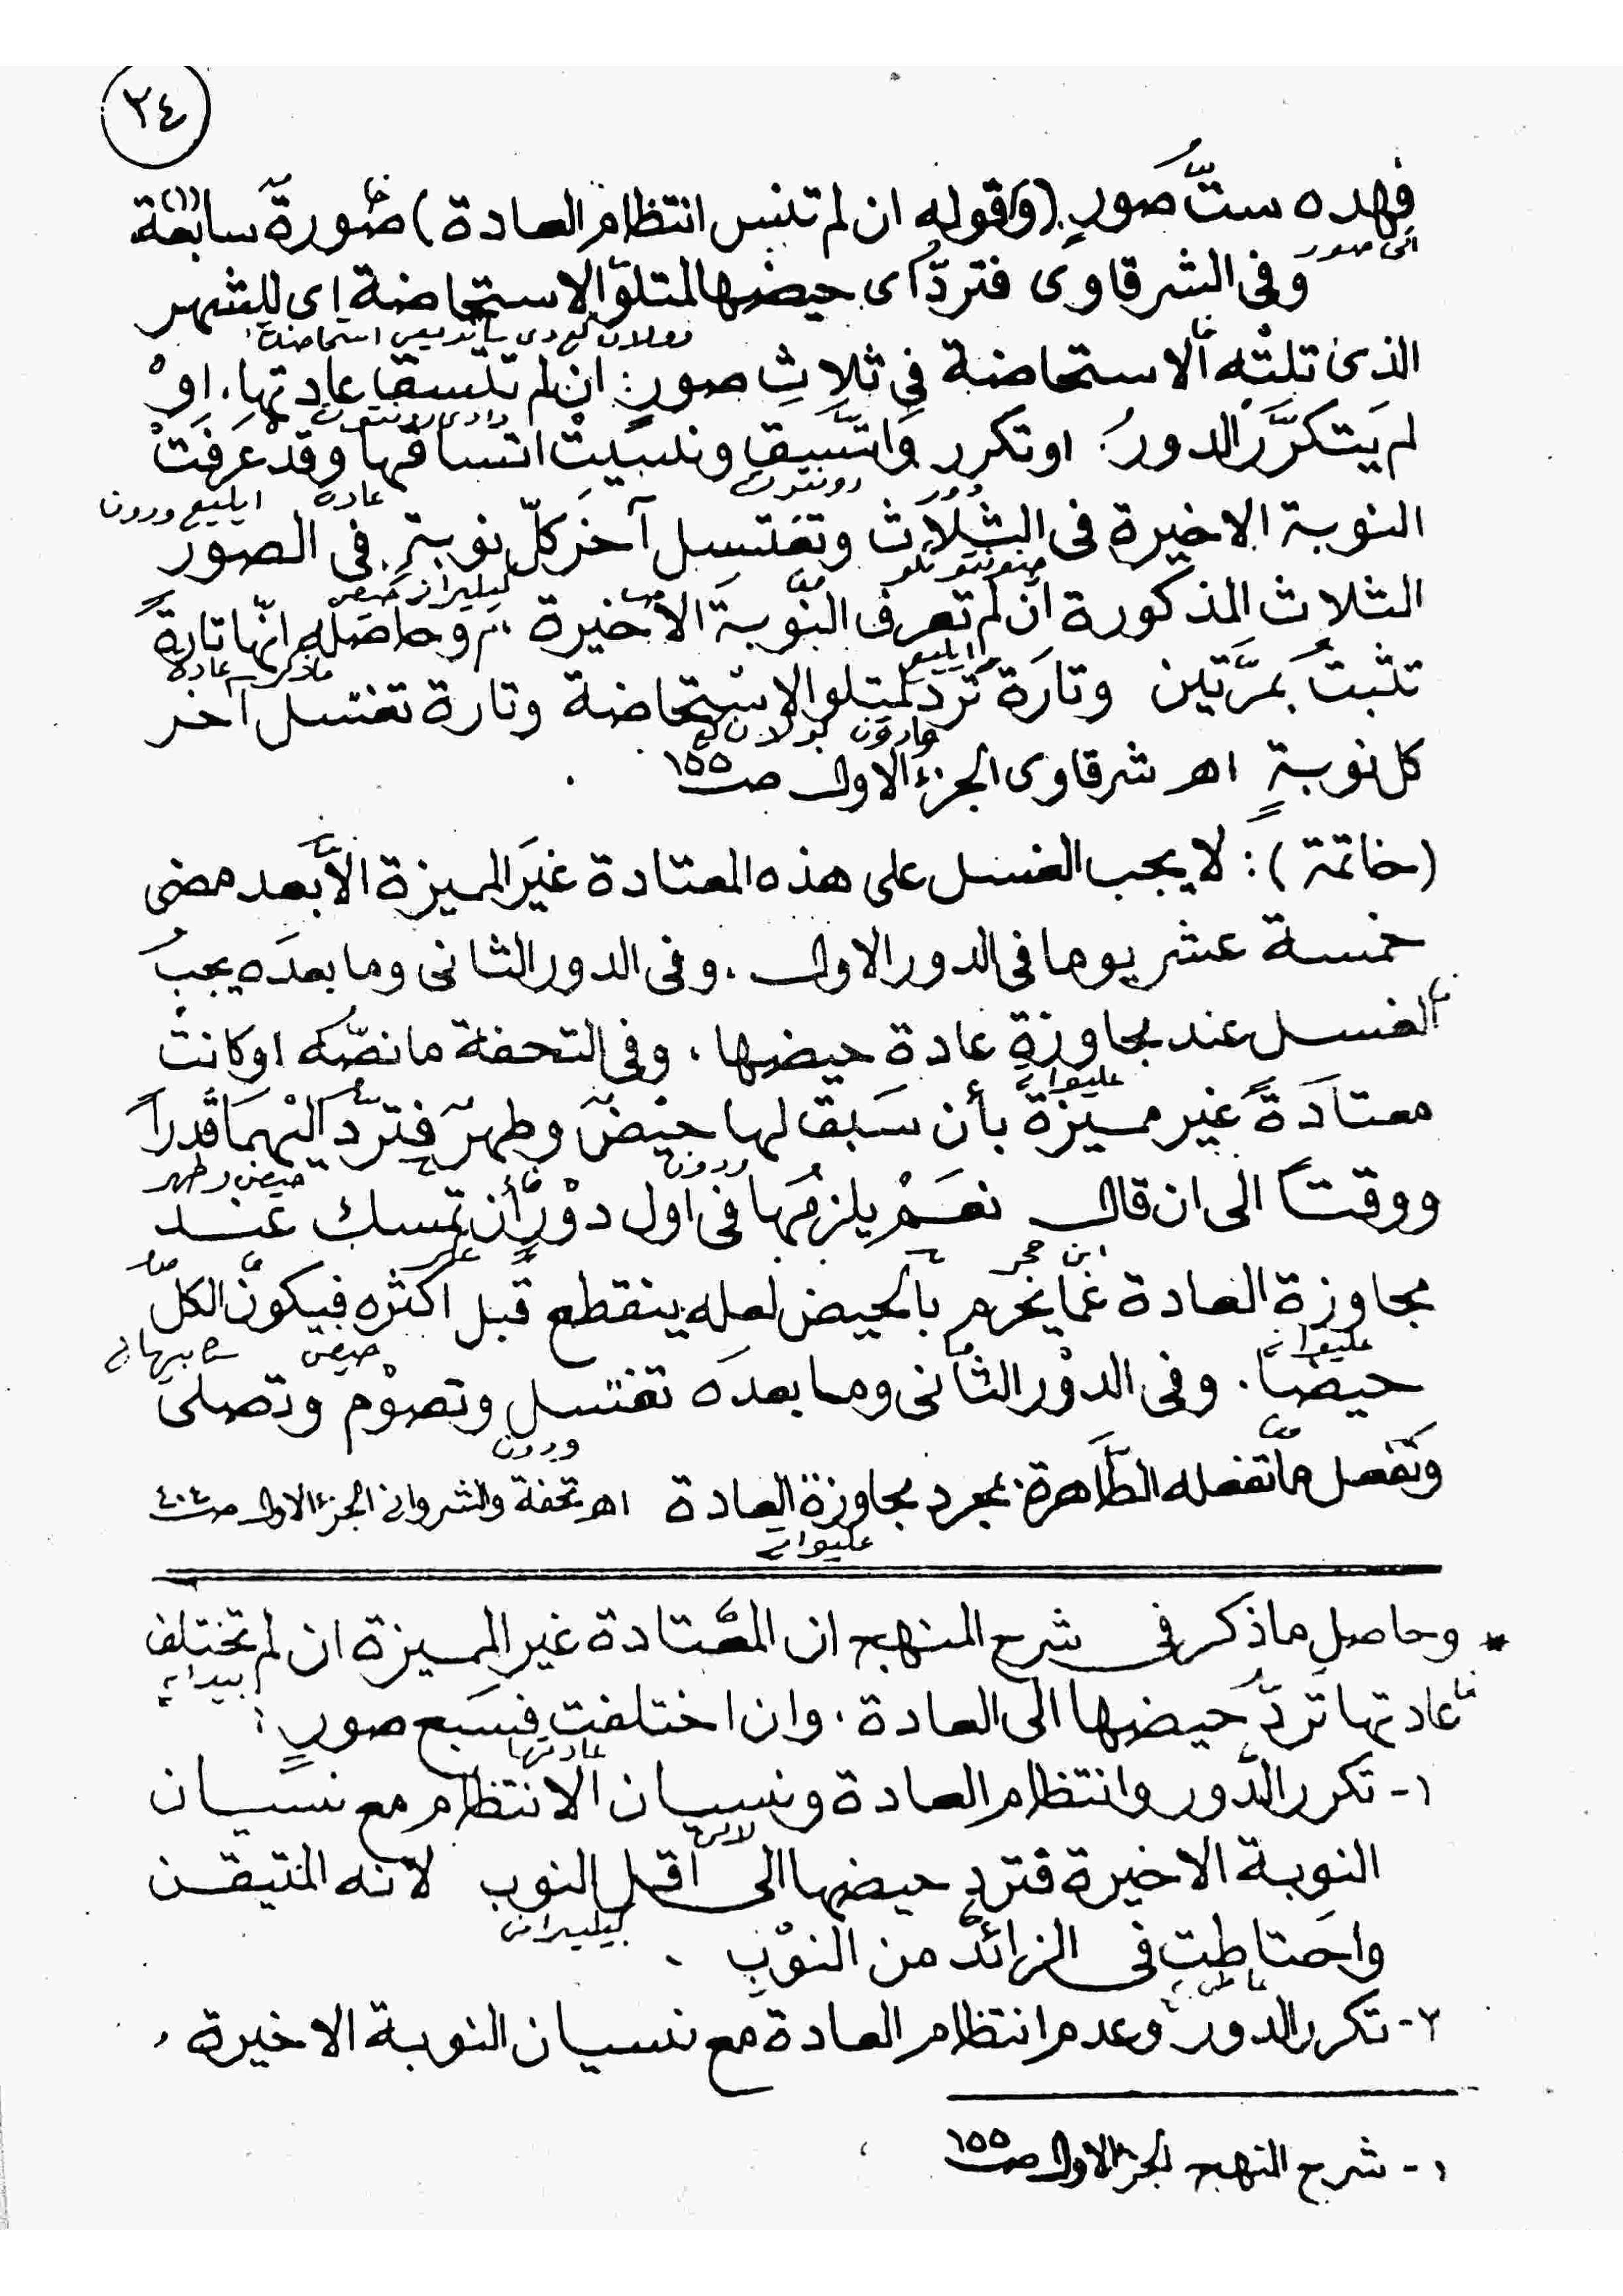 ٢٤
فهده ستّ صورٍ (وقوله ان لم تنس انتظام العادة) صورة سابعة (١)
اى صور
وفى الشرقاوى فتردّ اى حيضها لمتلوّ الاستحاضة اى للشهر
الذى تلته الاستحاضة فى ثلاث صور: ان لم تتسق عادتها، او
لم يَتكرَّر الدورُ، او تكرر وَاتَّسق ونسيتْ اتساقها وقد عَرَفَتْ
عادة
النوبة الاخيرة فى الثلاث وتغتسل آخرَ كلّ نوبةٍ. فى الصور
الثلاث المذكورة ان لم تعرف النّوبةَ الاخيرة، وحاصله انّها تارةً
حيض
تثبتُ بمرَّتين وتارَة تُردّ لمتلو الاستحاضة وتارة تغتسل آخر
عادة
كل نوبةٍ اهـ شرقاوى الجزء الاول صـ ١٥٥
(خاتمة): لا يجب الغسل على هذه المعتادة غيرَ المميزة الاّ بعد مضى
خمسة عشر يوما فى الدور الاول. وفى الدور الثانى وما بعدَه يجبُ
الغسل عند مجاوزة عادة حيضها. وفى التحفة ما نصّه او كانت
معتادَةً غير مميّزة بأن سَبَق لها حيضٌ وطهرٌ فتردّ اليْهما قدراً
حيض وطهر
ووقتاً الى ان قال نعَمْ يلزمُها فى اول دوْر أن تمسك عند
ابن حجر
مجاوزة العادة عما يحرم بالحيض لعله ينقطع قبل اكثره فيكون الكلّ
حيض
حيضاً. وفى الدوْر الثانى وما بعدَه تغتسل وتصوْم وتصلى
وتفعل ما تفعله الطّاهرة بمجرد مجاوزة العادة اهـ تحفة والشروانى الجزء الاول صـ ٤٠٤
* وحاصل ما ذكر فى شرح المنهج ان المعتادة غير المميزة ان لم تختلف
عادتها تَردّ حيضها الى العادة. وان اختلفت فسَبع صورٍ:
عادتها
١- تكرر الدّور وانتظام العادة ونسيان الانتظام مع نسيان
النوبة الاخيرة فترد حيضها الى اقل النوب لانه المتيقن
واحتاطت فى الزائد من النوْب.
٢- تكرر الدّور وعدم انتظام العادة مع نسيان النوبة الاخيرة،
١- شرح المنهج الجزء الاول صـ ١٥٥